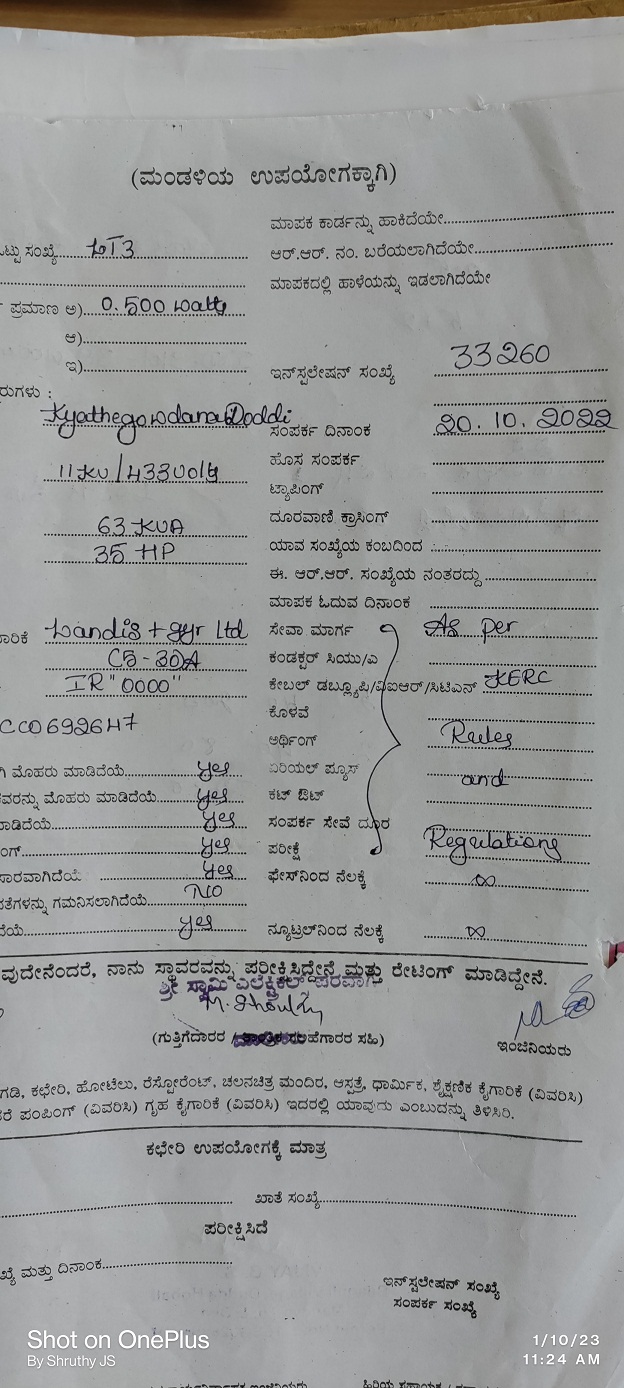 (ಮಂಡಳಿಯ ಉಪಯೋಗಕ್ಕಾಗಿ)
ಮಾಪಕ ಕಾರ್ಡನ್ನು ಹಾಕಿದೆಯೇ
ಸಂಖ್ಯೆ LT3 ಆರ್.ಆರ್. ನಂ. ಬರೆಯಲಾಗಿದೆಯೇ
ಮಾಪಕದಲ್ಲಿ ಹಾಳೆಯನ್ನು ಇಡಲಾಗಿದೆಯೇ
ಪ್ರಮಾಣ ಅ) 0.500 watts
ಆ)
ಇ) ಇನ್‌ಸ್ಟಲೇಷನ್ ಸಂಖ್ಯೆ 33260
ರುಗಳು :
Kyathegowdana Doddi ಸಂಪರ್ಕ ದಿನಾಂಕ 20.10.2022
ಹೊಸ ಸಂಪರ್ಕ
11KV/433Volts ಟ್ಯಾಪಿಂಗ್
63 KVA ದೂರವಾಣಿ ಕ್ರಾಸಿಂಗ್
35 HP ಯಾವ ಸಂಖ್ಯೆಯ ಕಂಬದಿಂದ
ಈ. ಆರ್.ಆರ್. ಸಂಖ್ಯೆಯ ನಂತರದ್ದು
ಮಾಪಕ ಓದುವ ದಿನಾಂಕ
ಾರಿಕೆ Landis + gyr Ltd ಸೇವಾ ಮಾರ್ಗ As per
C5-30A ಕಂಡಕ್ಟರ್ ಸಿಯು/ಎ
IR "0000" ಕೇಬಲ್ ಡಬ್ಲ್ಯೂಪಿ/ವಿಐಆರ್/ಸಿಟಿಎಸ್ KERC
CC0692647 ಕೊಳವೆ
ಅರ್ಥಿಂಗ್ Rules
ಮೊಹರು ಮಾಡಿದೆಯೆ yes ಏರಿಯಲ್ ಫ್ಯೂಸ್ and
ವರನ್ನು ಮೊಹರು ಮಾಡಿದೆಯೆ yes ಕಟ್ ಔಟ್
ಾಡಿದೆಯೆ yes ಸಂಪರ್ಕ ಸೇವೆ ದೂರ
ಂಗ್ yes ಪರೀಕ್ಷೆ Regulations
ಸಾರವಾಗಿದೆಯೆ yes ಫೇಸ್‌ನಿಂದ ನೆಲಕ್ಕೆ ∞
ತೆಗಳನ್ನು ಗಮನಿಸಲಾಗಿದೆಯೆ NO
ದೆಯೆ yes ನ್ಯೂಟ್ರಲ್‌ನಿಂದ ನೆಲಕ್ಕೆ ∞
ವುದೇನೆಂದರೆ, ನಾನು ಸ್ಥಾವರವನ್ನು ಪರೀಕ್ಷಿಸಿದ್ದೇನೆ ಮತ್ತು ರೇಟಿಂಗ್ ಮಾಡಿದ್ದೇನೆ.
ಶ್ರೀ ಸ್ವಾಮಿ ಎಲೆಕ್ಟ್ರಿಕಲ್ ಪರವಾಗಿ
(ಗುತ್ತಿಗೆದಾರರ / ಸಹಿ) ಇಂಜಿನಿಯರು
ಗಡಿ, ಕಛೇರಿ, ಹೋಟೆಲು, ರೆಸ್ಟೋರೆಂಟ್, ಚಲನಚಿತ್ರ ಮಂದಿರ, ಆಸ್ಪತ್ರೆ, ಧಾರ್ಮಿಕ, ಶೈಕ್ಷಣಿಕ ಕೈಗಾರಿಕೆ (ವಿವರಿಸಿ)
ರೆ ಪಂಪಿಂಗ್ (ವಿವರಿಸಿ) ಗೃಹ ಕೈಗಾರಿಕೆ (ವಿವರಿಸಿ) ಇದರಲ್ಲಿ ಯಾವುದು ಎಂಬುದನ್ನು ತಿಳಿಸಿರಿ.
ಕಛೇರಿ ಉಪಯೋಗಕ್ಕೆ ಮಾತ್ರ
ಖಾತೆ ಸಂಖ್ಯೆ
ಪರೀಕ್ಷಿಸಿದೆ
ಖ್ಯೆ ಮತ್ತು ದಿನಾಂಕ
ಇನ್‌ಸ್ಟಲೇಷನ್ ಸಂಖ್ಯೆ
ಸಂಪರ್ಕ ಸಂಖ್ಯೆ
Shot on OnePlus
By Shruthy JS
1/10/23
11:24 AM